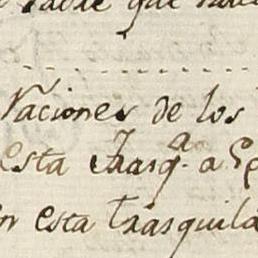 que
Naciones de los
esta trasq.ª a
esta trasquila